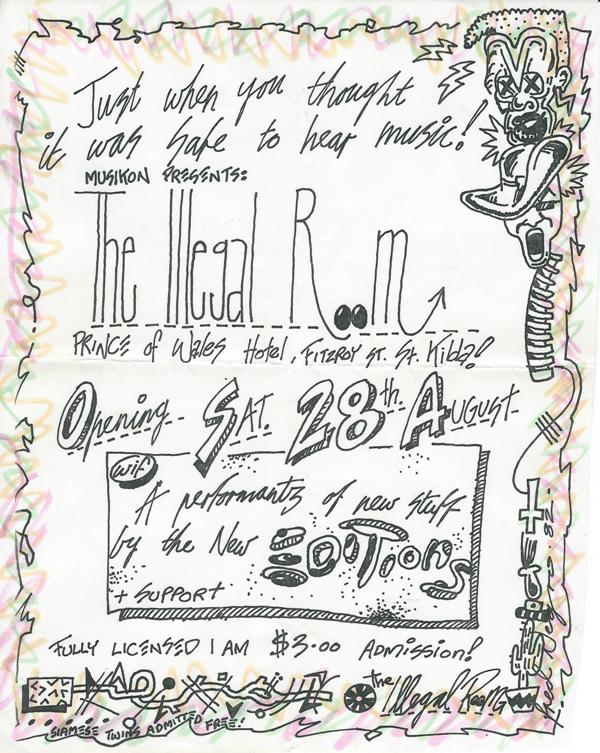 Just when you thought
it was safe to hear music!
MUSIKON PRESENTS:
The Illegal Room
PRINCE of WALES HOTEL, FITZROY ST. St. Kilda!
Opening SAT. 28th. AUGUST
wif
A performantz of new stuff
by the New EDITIONS
+ SUPPORT
FULLY LICENSED 1 AM $3.00 ADMISSION!
the Illegal Room
SIAMESE TWINS ADMITTED FREE!